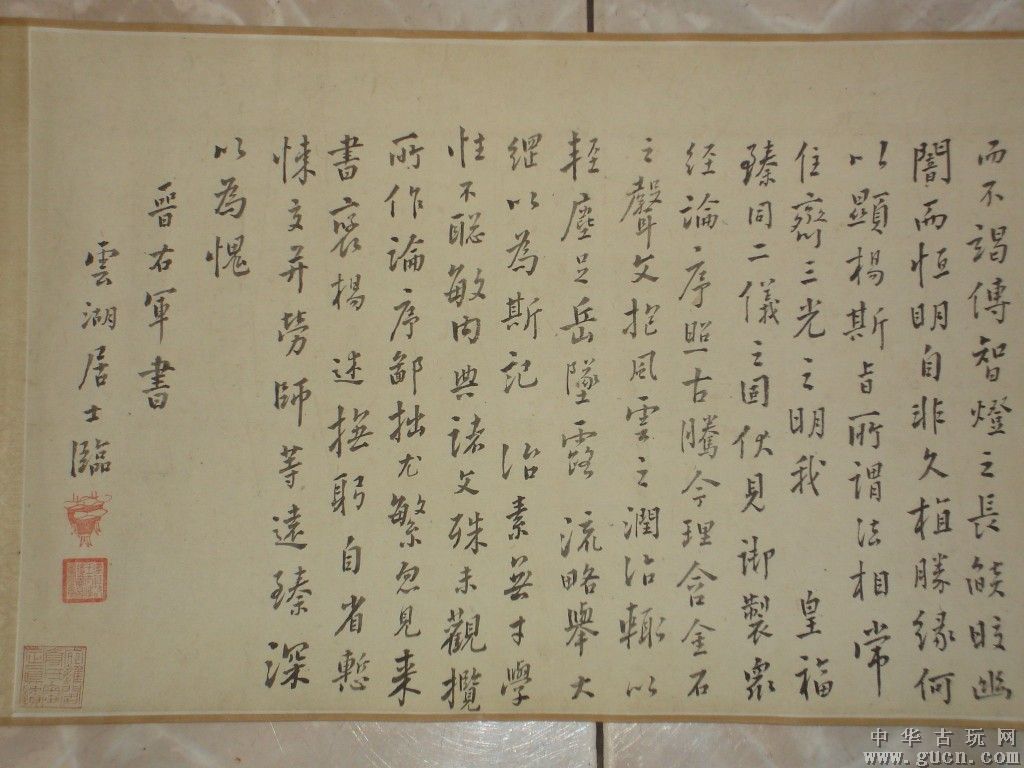 而不竭傳智燈之長燄皎幽
闇而恒明自非久植勝緣何
以顯揚斯旨所謂法相常
住齊三光之明我 皇福
臻同二儀之固伏見御製衆
经論序照古騰今理含金石
之聲文抱風雲之潤治輒以
輕塵足岳墜露流略舉大
綱以為斯記 治素無才學
性不聰敏内典諸文殊未觀攬
所作論序鄙拙尤繁忽見来
書褒揚 述撫躬自省慙
悚交并勞師等遠臻深
以為愧
晉右軍書
雲湖居士臨
中华古玩网
www.gucn.com